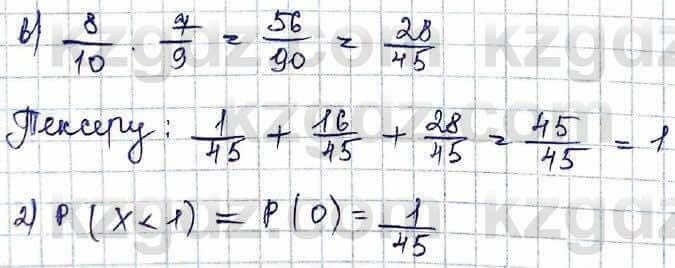 в) 8/10 · 7/9 = 56/90 = 28/45
Тексеру: 1/45 + 16/45 + 28/45 = 45/45 = 1
2) P(X<1) = P(0) = 1/45